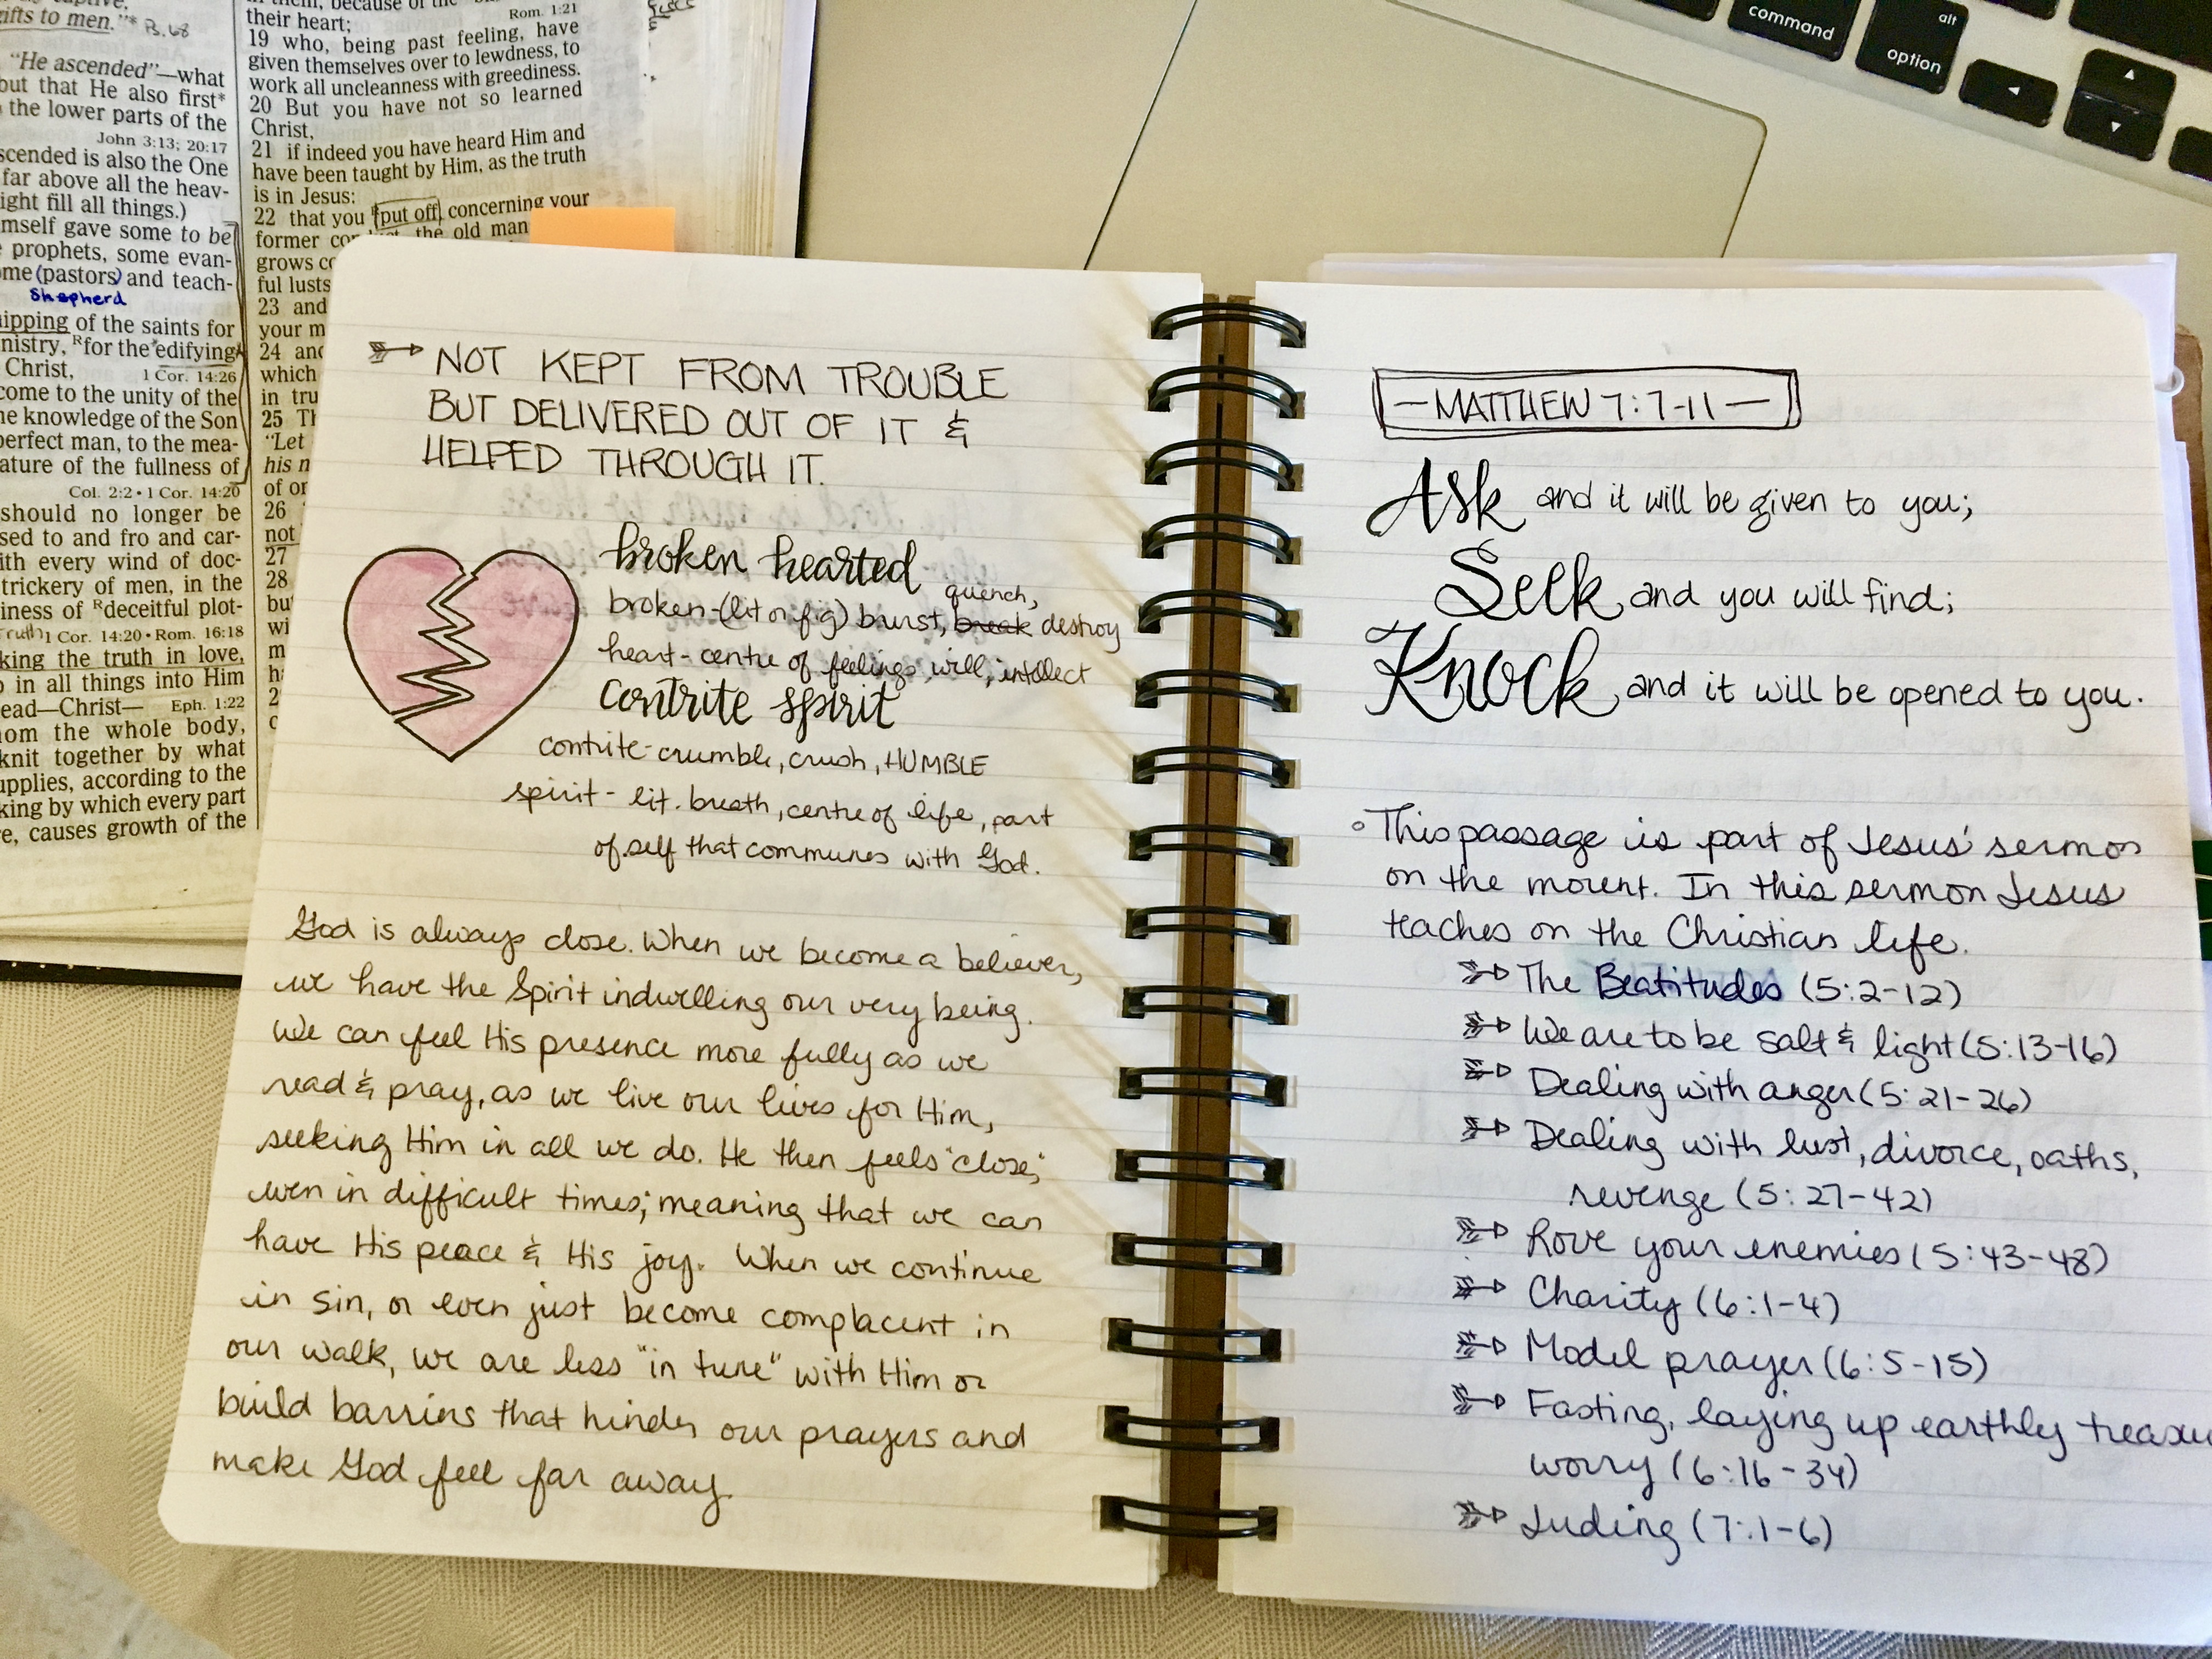 gifts to men."* Ps. 68
"He ascended"—what
but that He also first*
the lower parts of the
John 3:13; 20:17
scended is also the One
far above all the heav-
ight fill all things.)
mself gave some to be
prophets, some evan-
ome (pastors) and teach-
Shepherd
ipping of the saints for
nistry, R for the *edifying
Christ, 1 Cor. 14:26
come to the unity of the
ne knowledge of the Son
perfect man, to the mea-
ature of the fullness of
Col. 2:2 • 1 Cor. 14:20
should no longer be
sed to and fro and car-
ith every wind of doc-
trickery of men, in the
iness of R deceitful plot-
Truth 1 Cor. 14:20 • Rom. 16:18
king the truth in love,
in all things into Him
ead—Christ— Eph. 1:22
om the whole body,
knit together by what
upplies, according to the
king by which every part
e, causes growth of the
in them, because of the
their heart; Rom. 1:21
19 who, being past feeling, have
given themselves over to lewdness, to
work all uncleanness with greediness.
20 But you have not so learned
Christ,
21 if indeed you have heard Him and
have been taught by Him, as the truth
is in Jesus:
22 that you put off concerning your
former con the old man
grows co
ful lusts
23 and
your m
24 and
which
in tru
25 Th
"Let
his n
of or
26
not
27
28
bu
wi
m
h
2
NOT KEPT FROM TROUBLE
BUT DELIVERED OUT OF IT &
HELPED THROUGH IT.
broken hearted
quench,
broken-(lit or fig) burst, break destroy
heart- centre of feelings, will, intellect
contrite spirit
contrite- crumble, crush, HUMBLE
spirit - lit. breath, centre of life, part
of self that communes with God.
God is always close. When we become a believer,
we have the Spirit indwelling our very being.
We can feel His presence more fully as we
read & pray, as we live our lives for Him,
seeking Him in all we do. He then feels "close,"
even in difficult times; meaning that we can
have His peace & His joy. When we continue
in sin, or even just become complacent in
our walk, we are less "in tune" with Him or
build barriers that hinder our prayers and
make God feel far away.
— MATTHEW 7:7-11 —
Ask and it will be given to you;
Seek and you will find;
Knock and it will be opened to you.
This passage is part of Jesus' sermon
on the mount. In this sermon Jesus
teaches on the Christian life.
The Beatitudes (5:2-12)
We are to be salt & light (5:13-16)
Dealing with anger (5:21-26)
Dealing with lust, divorce, oaths,
revenge (5:27-42)
Love your enemies (5:43-48)
Charity (6:1-4)
Model prayer (6:5-15)
Fasting, laying up earthly treasu
worry (6:16-34)
Juding (7:1-6)
command
alt
option